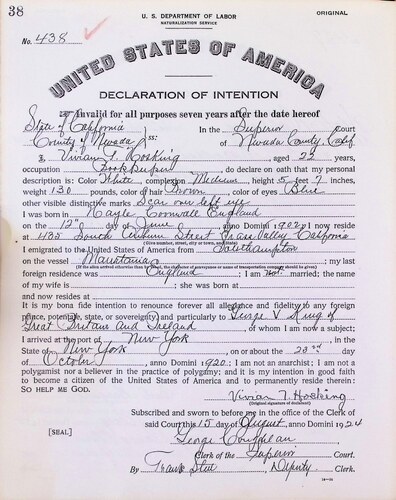 38
U. S. DEPARTMENT OF LABOR
NATURALIZATION SERVICE
ORIGINAL
No. 438
UNITED STATES OF AMERICA
DECLARATION OF INTENTION
Invalid for all purposes seven years after the date hereof
State of California
In the Superior Court
County of Nevada ss:
of Nevada County, Calif
I, Vivian T. Hosking, aged 22 years,
occupation Book keeper, do declare on oath that my personal
description is: Color White, complexion Medium, height 5 feet 7 inches,
weight 130 pounds, color of hair Brown, color of eyes Blue
other visible distinctive marks Scar over left eye
I was born in Hayle Cornwall England
on the 12th day of June, anno Domini 1902; I now reside
at 438 South Auburn Street Grass Valley California
(Give number, street, city or town, and State)
I emigrated to the United States of America from Southampton
on the vessel Mauretania; my last
(If the alien arrived otherwise than by vessel, the character of conveyance or name of transportation company should be given)
foreign residence was England; I am not married; the name
of my wife is ; she was born at
and now resides at
It is my bona fide intention to renounce forever all allegiance and fidelity to any foreign
prince, potentate, state, or sovereignty, and particularly to George V King of
Great Britain and Ireland, of whom I am now a subject;
I arrived at the port of New York, in the
State of New York, on or about the 23rd day
of October, anno Domini 1920; I am not an anarchist; I am not a
polygamist nor a believer in the practice of polygamy; and it is my intention in good faith
to become a citizen of the United States of America and to permanently reside therein:
SO HELP ME GOD.
Vivian T. Hosking
(Original signature of declarant)
Subscribed and sworn to before me in the office of the Clerk of
said Court this 15 day of August, anno Domini 1924
[SEAL]
George
Clerk of the Superior Court.
By Frank Steel Deputy Clerk.